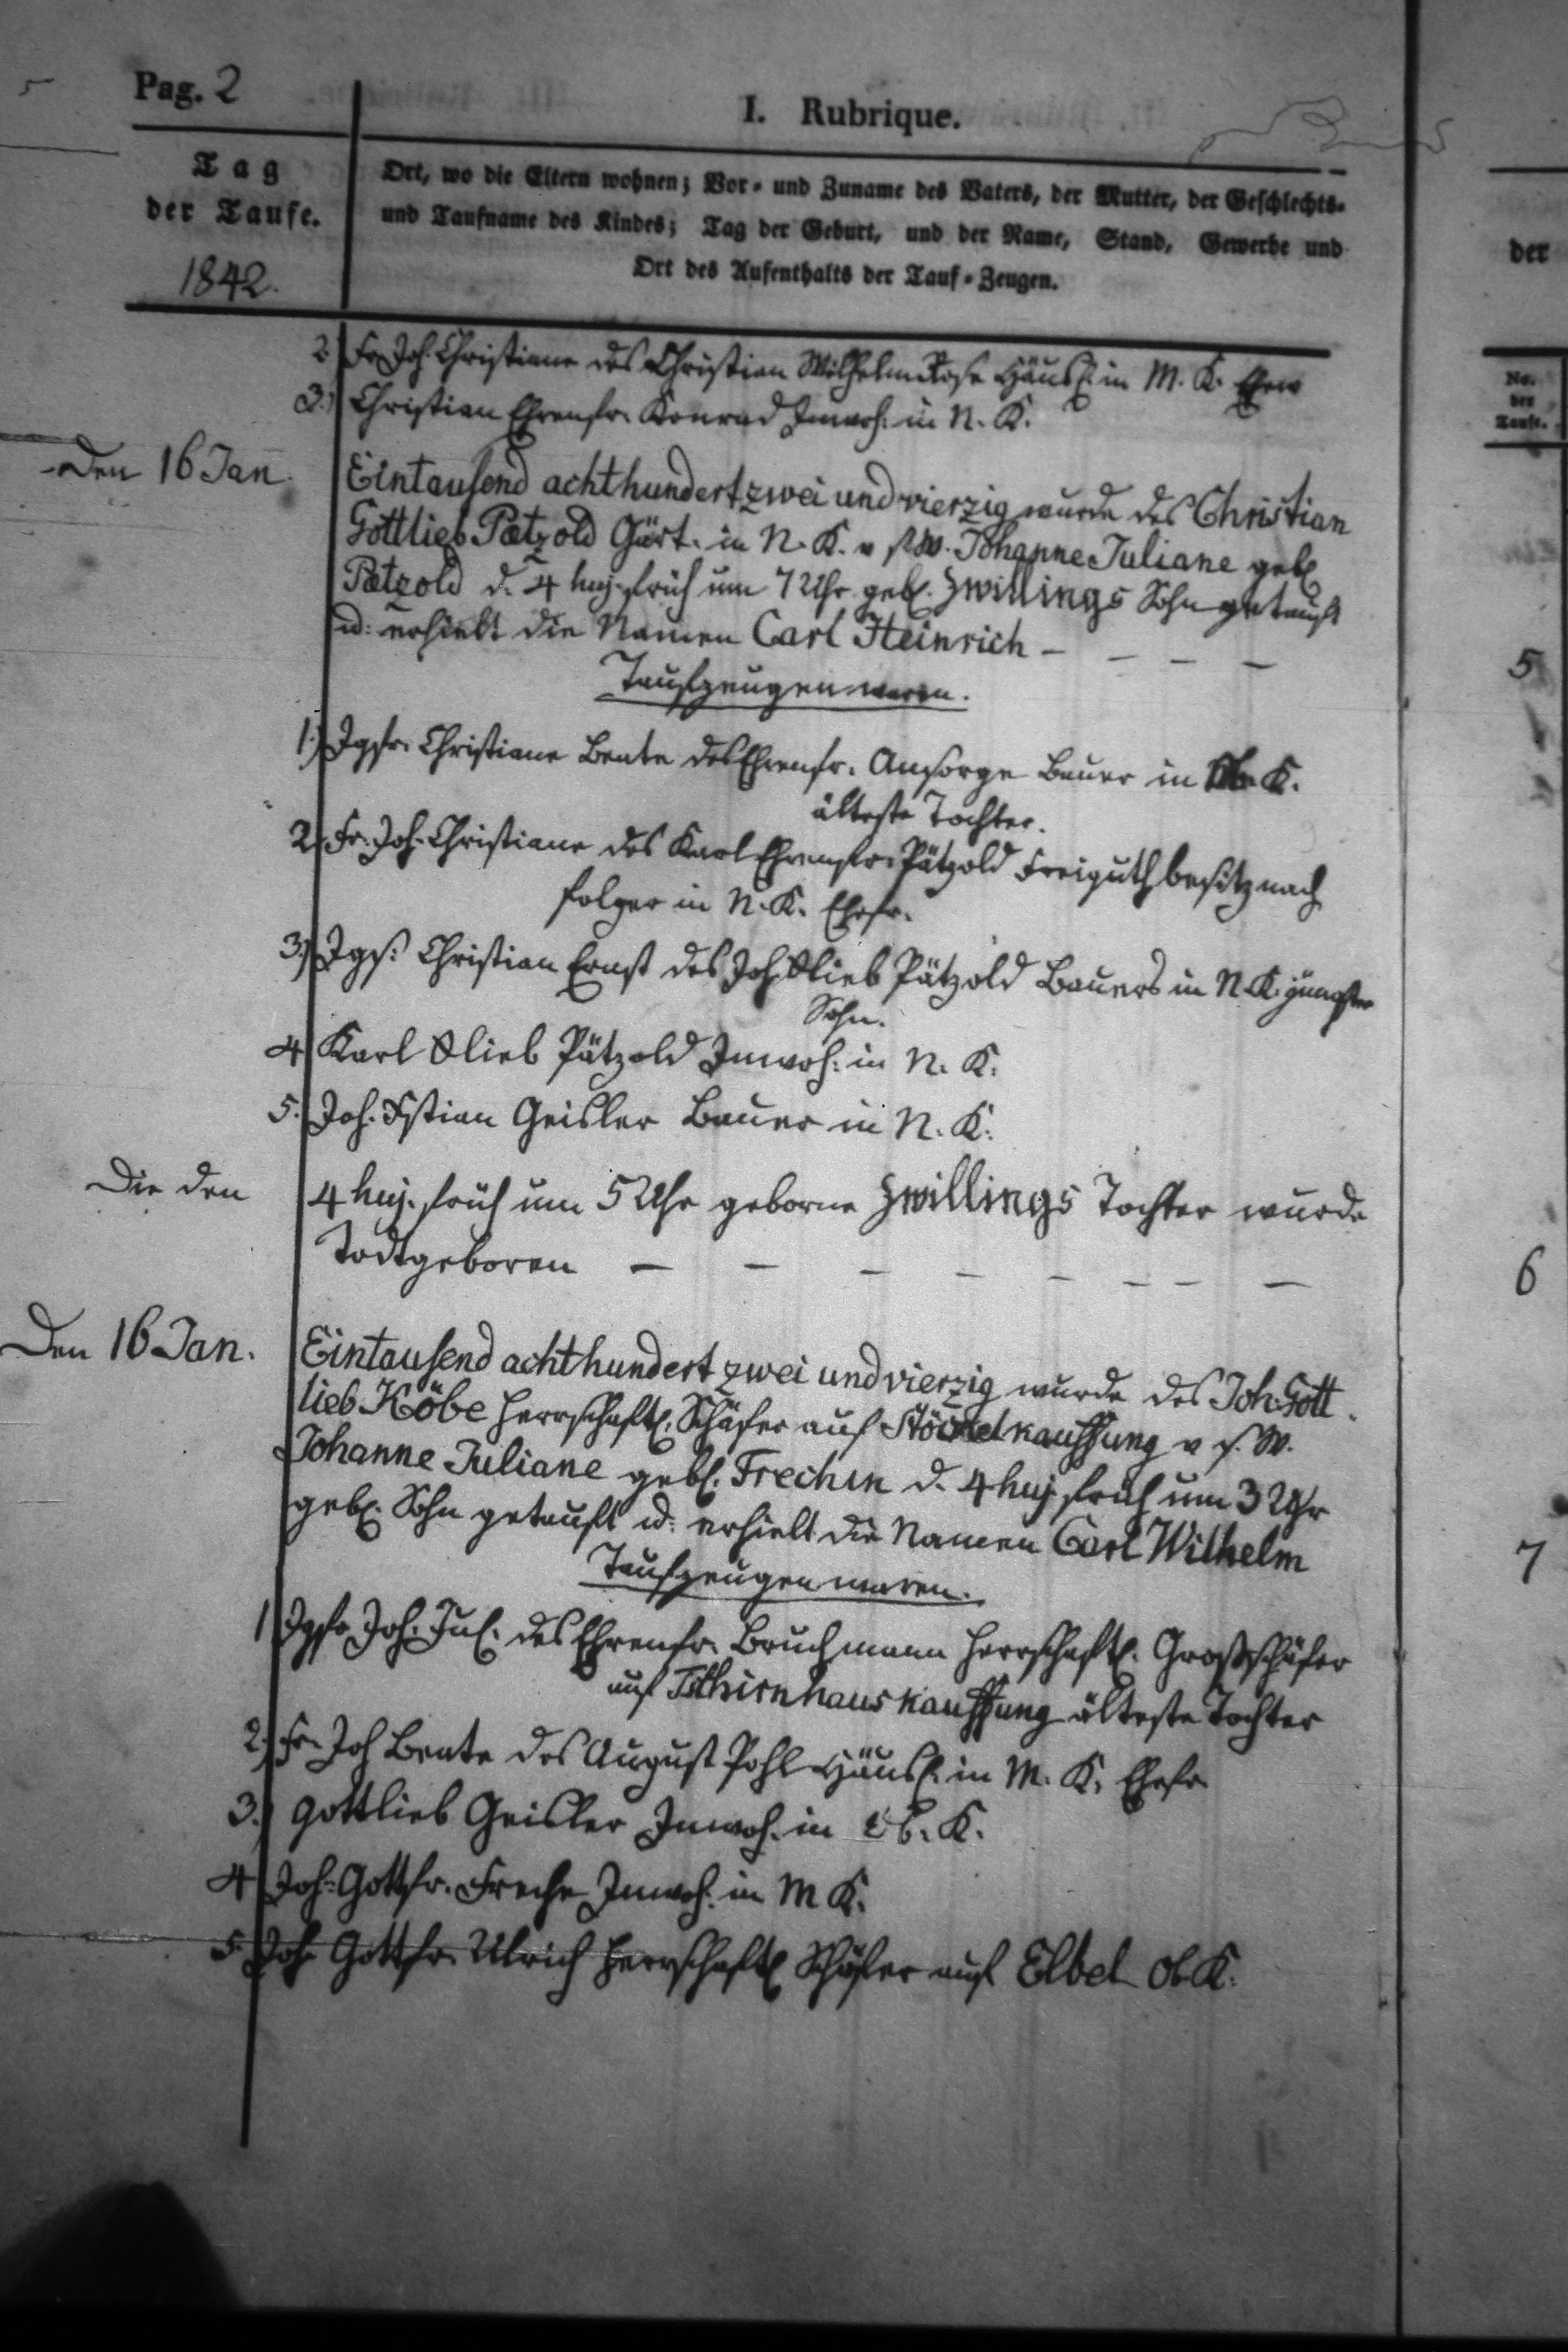 Pag. 2
I. Rubrique.
Tag
der Taufe.
1842.
Ort, wo die Eltern wohnen; Vor- und Zuname des Vaters, der Mutter, der Geschlechts-
und Taufname des Kindes; Tag der Geburt, und der Name, Stand, Gewerbe und
Ort des Aufenthalts der Tauf-Zeugen.
2. Fr. Joh. Christiane des Christian Wilhelm Rose Häusl. in M. K.
3.) Christian Ehrenfr. Konrad Inwoh. in N. K.
Den 16 Jan. Eintausend achthundert zwei und vierzig wurde des Christian
Gottlieb Pætzold Gärt. in N. K. v s. W. Johanne Juliane geb.
Pætzold d. 4 huj. früh um 7 Uhr geb. Zwillings Sohn getauft
u. erhielt die Namen Carl Heinrich – – – –
Taufzeugen waren.
1.) Jgfr. Christiane Beate des Ehrenfr. Ansorge Bauer in Ob. K.
älteste Tochter.
2. Fr. Joh. Christiane des Karl Ehrenfr. Pätzold Freiguthbesitz nach
folger in N. K. Ehefr.
3.) Jgs. Christian Ernst des Joh. Glieb Pätzold Bauers in N. K. jüngster
Sohn.
4 Karl Glieb Pätzold Inwoh. in N. K.
5. Joh. Xstian Geisler Bauer in N. K.
Die den 4 huj. früh um 5 Uhr geborne Zwillings Tochter wurde
Todtgeboren – – – – – – – –
Den 16 Jan. Eintausend achthundert zwei und vierzig wurde des Joh. Gott
lieb Köbe herrschaftl. Schäfer auf Stöckelkauffung v s. W.
Johanne Juliane geb. Frechin d. 4 huj. früh um 3 Uhr
geb. Sohn getauft u. erhielt die Namen Carl Wilhelm
Taufzeugen waren.
1 Jgfr. Joh. Jul. des Ehrenfr. Bruchmann herrschaftl. Großschäfer
auf Tschirnhauskauffung älteste Tochter
2.) Fr. Joh Beate des August Pohl Häusl. in M. K. Ehefr
3.) Gottlieb Geisler Inwoh. in Ob. K.
4 Joh. Gottfr. Freche Inwoh. in M K.
5. Joh Gottfr. Ulrich herrschaftl Schäfer auf Elbel Ob K.
der
No.
der
Taufe.
5
6
7